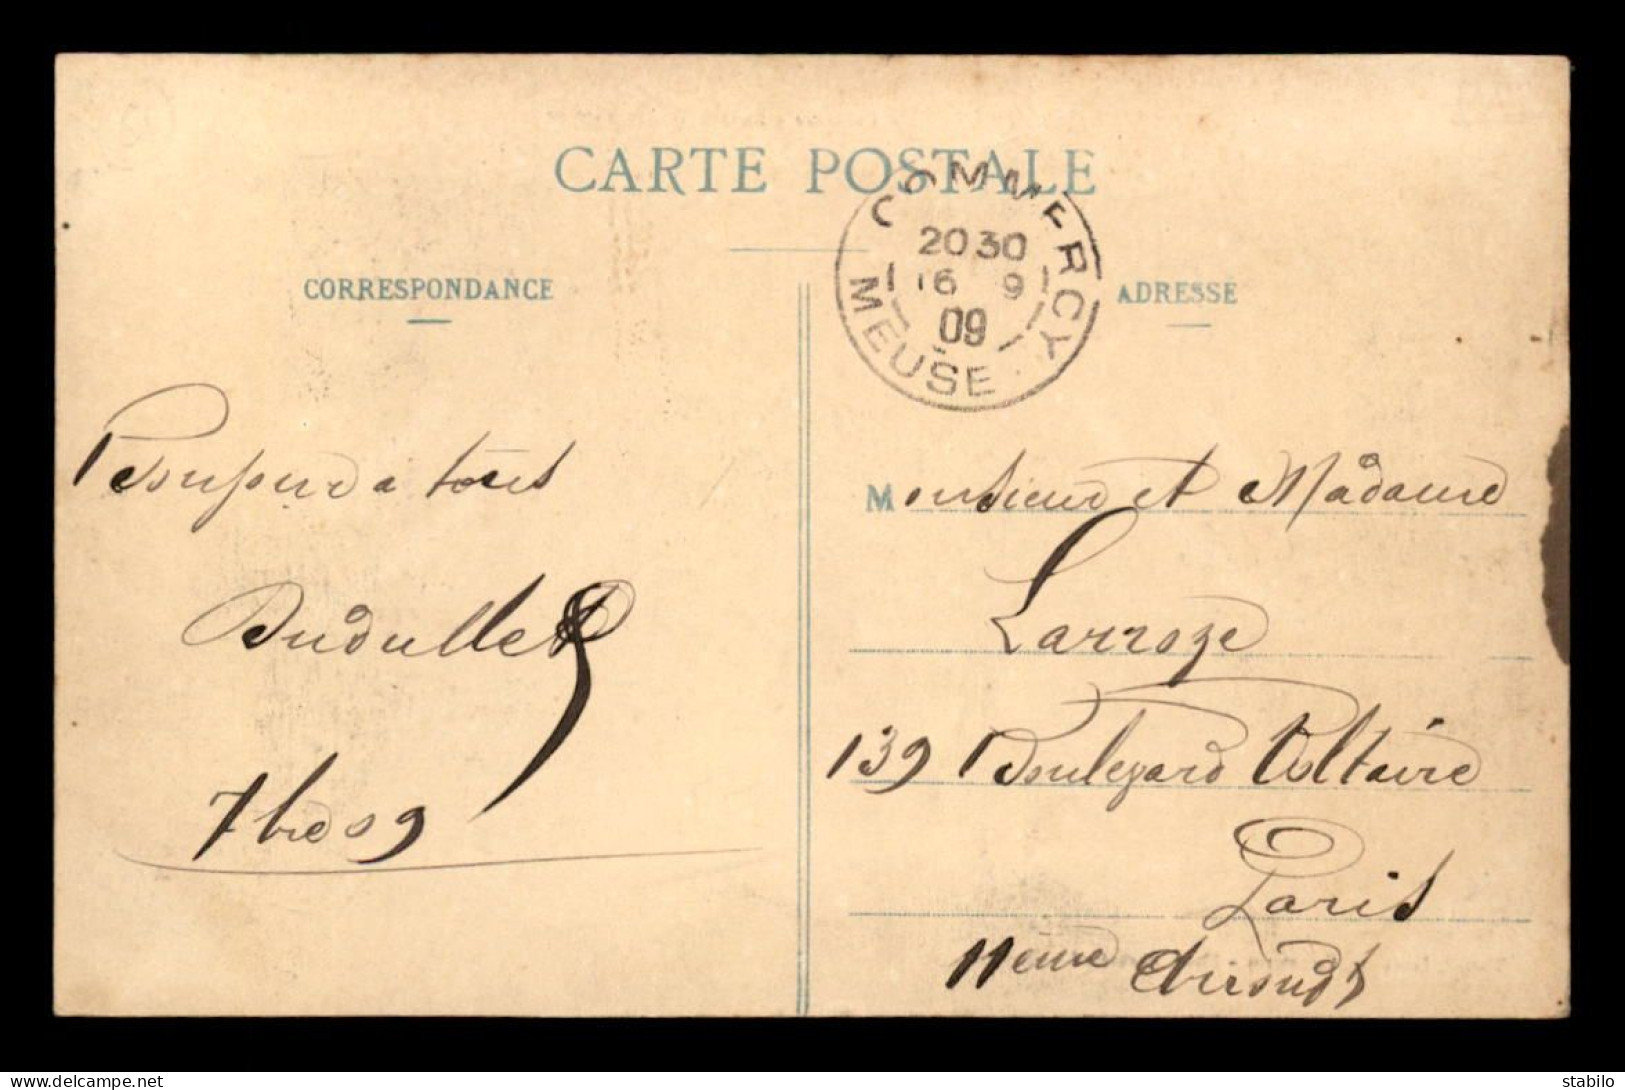 CARTE POSTALE
COMMERCY
20 30
16 9
09
MEUSE
CORRESPONDANCE
ADRESSE
Bonjour a tous
7bre 09
Monsieur et Madame
Larroze
139 Boulevard Voltaire
Paris
11eme Arrondt
delcampe.net
stabilo